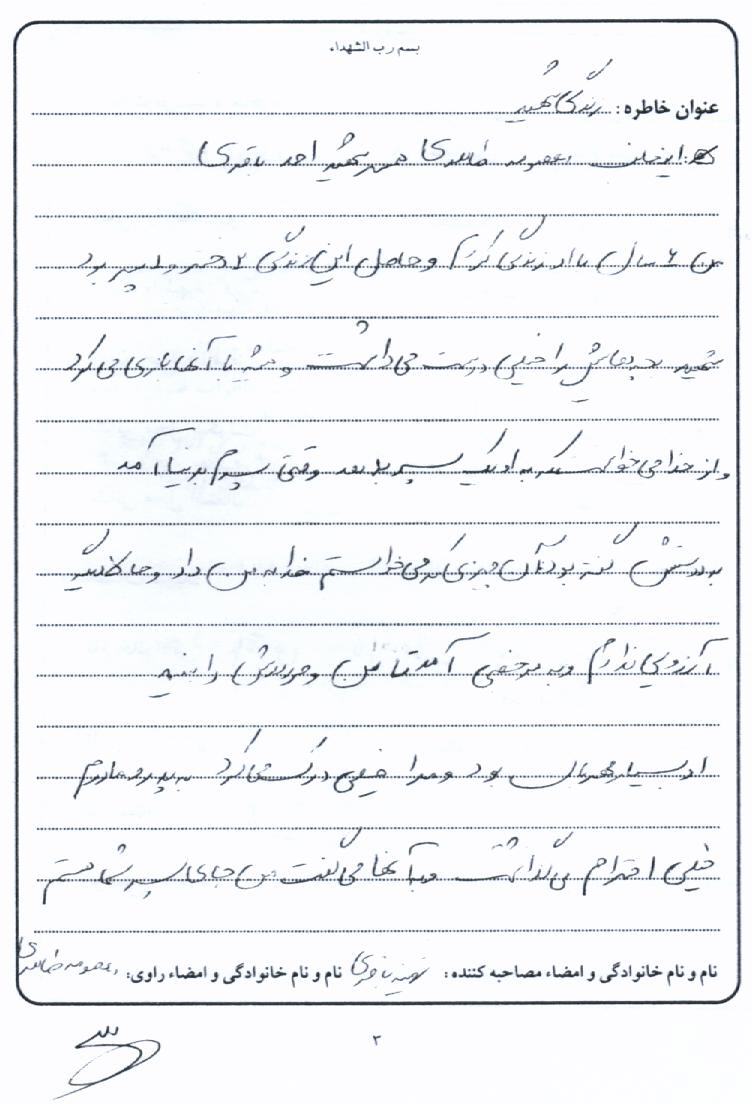 بسم رب الشهداء
عنوان خاطره: زندگی شهید
اینجانب معصومه طاهری همسر شهید احمد باقری
من ۶ سال با او زندگی کردم و حاصل این زندگی ۲ دختر و ۱ پسر بود
شهید بچه‌هایش را خیلی دوست می‌داشت و همیشه با آنها بازی می‌کرد
و از خدا می‌خواست که به او یک پسر بدهد وقتی پسرم به دنیا آمد
به دوستش گفته بود آن چیزی که می‌خواستم خدا به من داد و حالا دیگر
آرزویی ندارم و به مرخصی آمد تا من و را ببیند
او بسیار مهربان بود و مرا خیلی درک می‌کرد به پدر و مادرم
خیلی احترام می‌گذاشت و به آنها می‌گفت من جای پسر شما هستم
نام و نام خانوادگی و امضاء مصاحبه کننده: باقری نام و نام خانوادگی و امضاء راوی: معصومه طاهری
۳